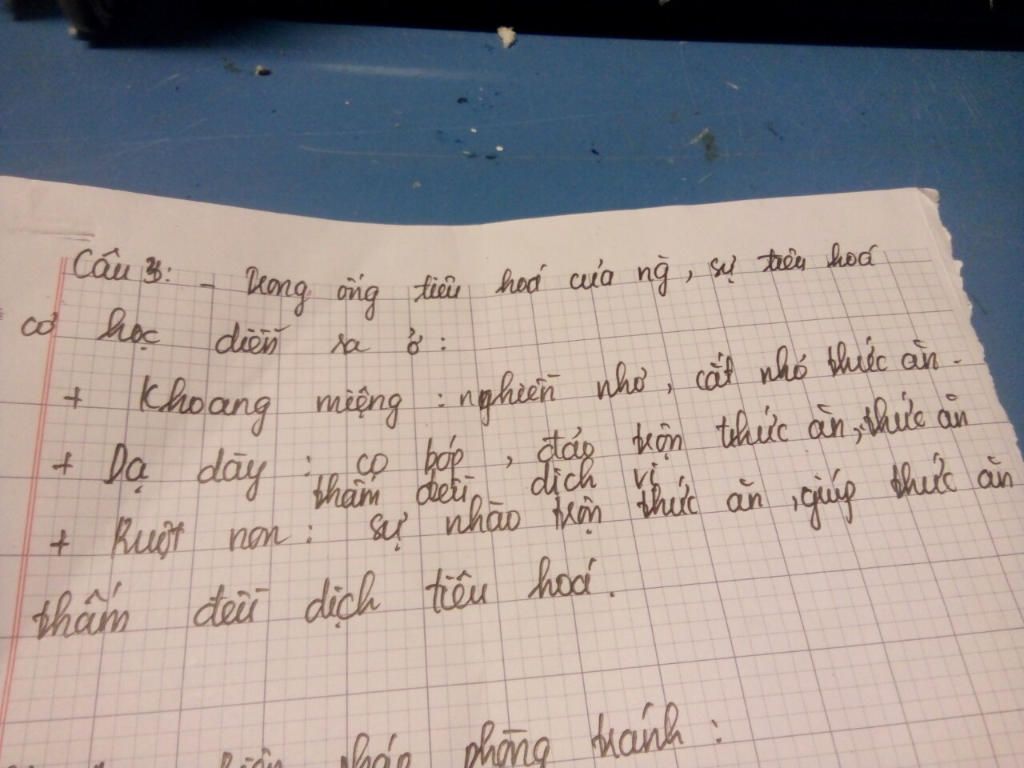 Câu 3: - Trong ống tiêu hoá của ng`, sự tiêu hoá
cơ học diễn ra ở:
+ Khoang miệng: nghiền nhỏ, cắt nhỏ thức ăn.
+ Dạ dày: co bóp, đảo trộn thức ăn, thức ăn
thấm đều dịch vị
+ Ruột non: sự nhào trộn thức ăn, giúp thức ăn
thấm đều dịch tiêu hoá.
pháp phòng tránh: